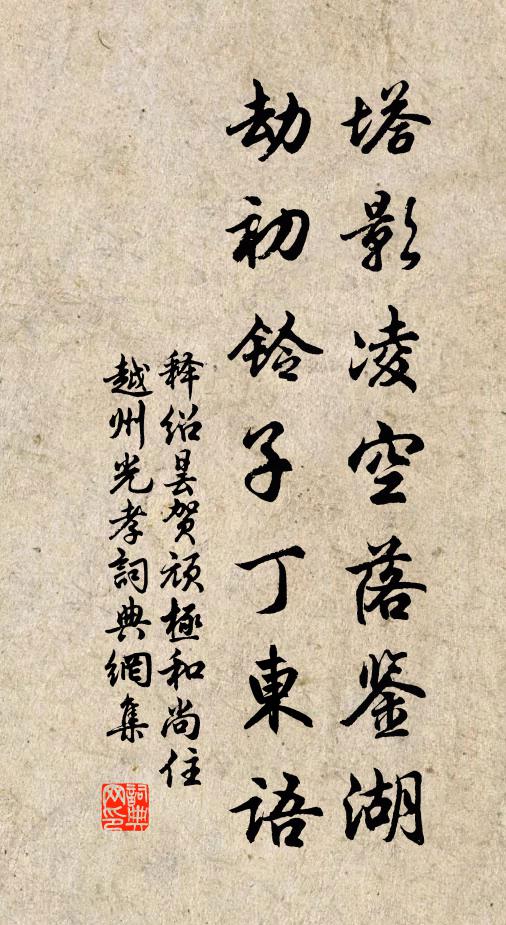 塔影凌空落鉴湖
劫初铃子丁東语
释绍昙贺顽極和尚住
越州光孝詞典網集
詞典网印